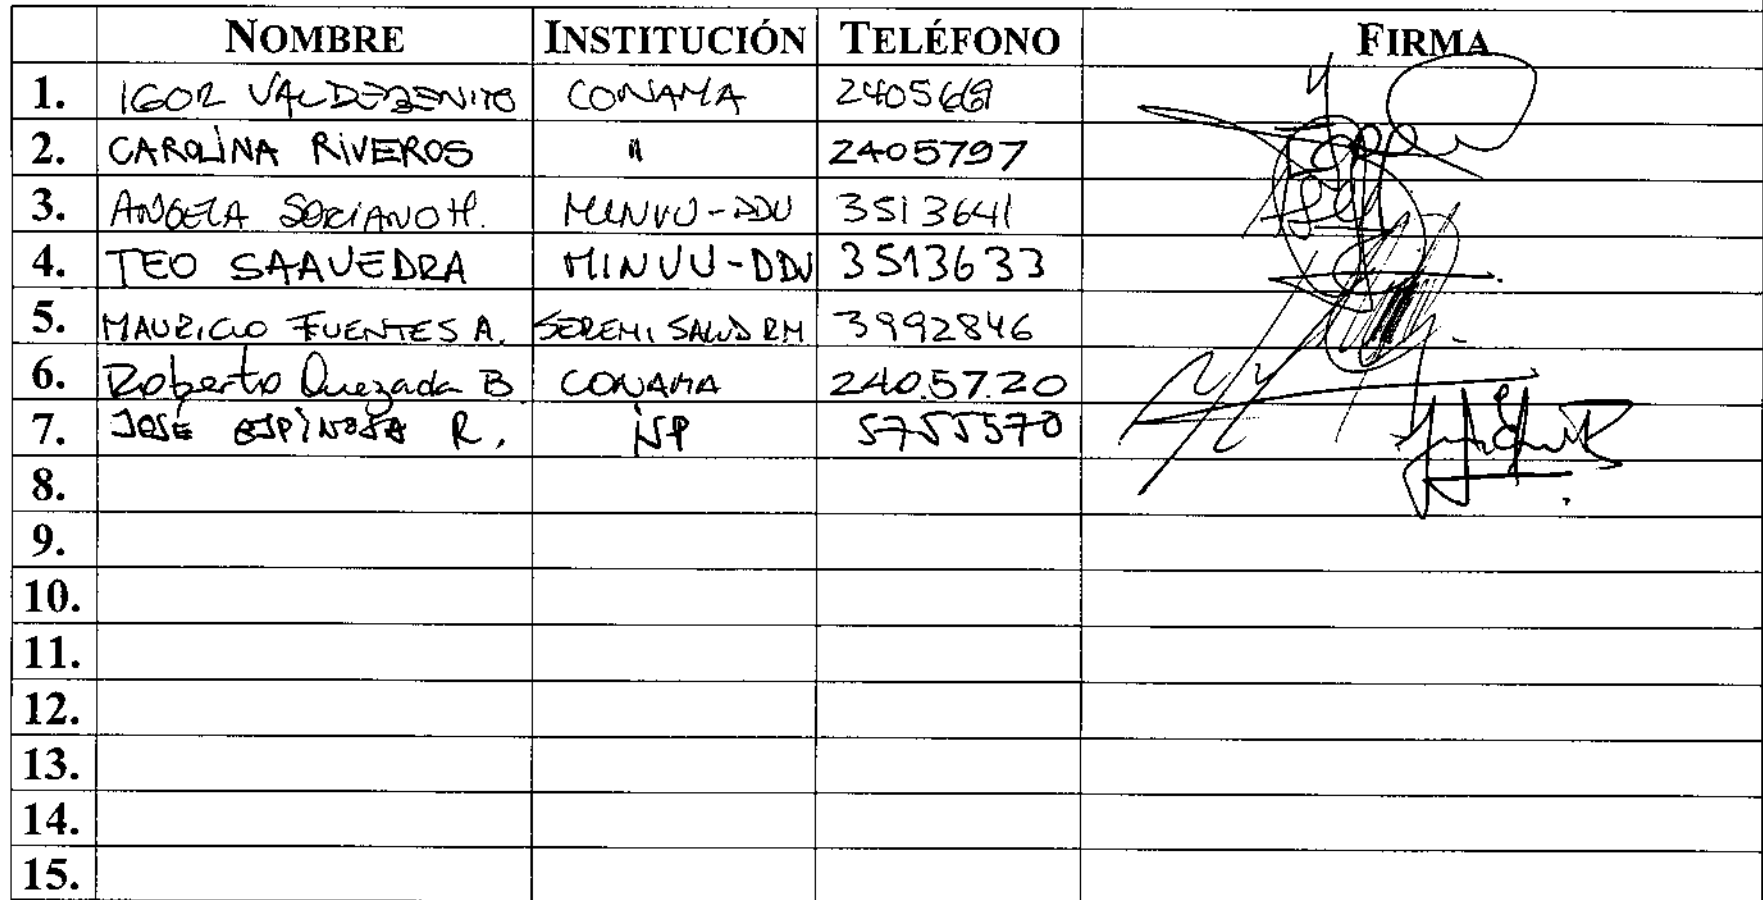 NOMBRE INSTITUCIÓN TELÉFONO FIRMA
1. IGOR VALDEBENITO CONAMA 2405669
2. CAROLINA RIVEROS " 2405797
3. ANGELA SORIANO H. MINVU-DDU 3513641
4. TEO SAAVEDRA MINVU-DDU 3513633
5. MAURICIO FUENTES A. SEREMI SALUD RM 3992846
6. Roberto Quezada B CONAMA 240.57.20
7. JOSÉ ESPINOSA R. ISP 5755570
8.
9.
10.
11.
12.
13.
14.
15.